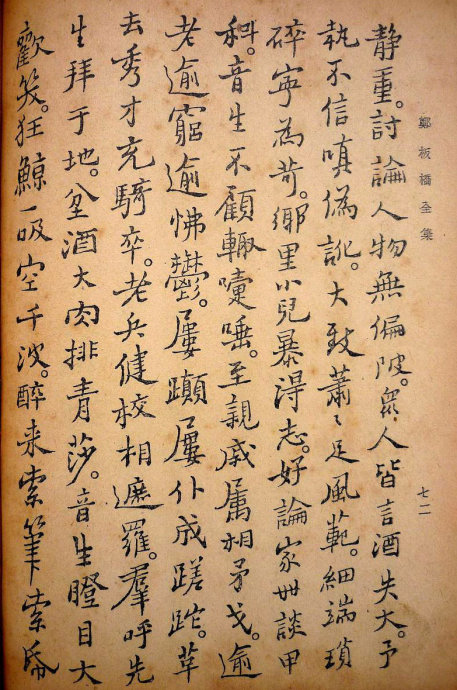 鄭板橋全集
七二
靜重。討論人物無偏陂。眾人皆言酒失大。予
執不信嗔偽訛。大致蕭〻足風範。細端瑣
碎寧為苛。鄉里小兒暴得志。好論家世談甲
科。音生不顧輒嚏唾。至親戚屬相矛戈。逾
老逾窮逾怫鬱。屢顛屢仆成蹉跎。革
去秀才充騎卒。老兵健校相遮羅。羣呼先
生拜于地。坌酒大肉排青莎。音生瞪目大
歡笑。狂鯨一吸空千波。醉来索筆索帋